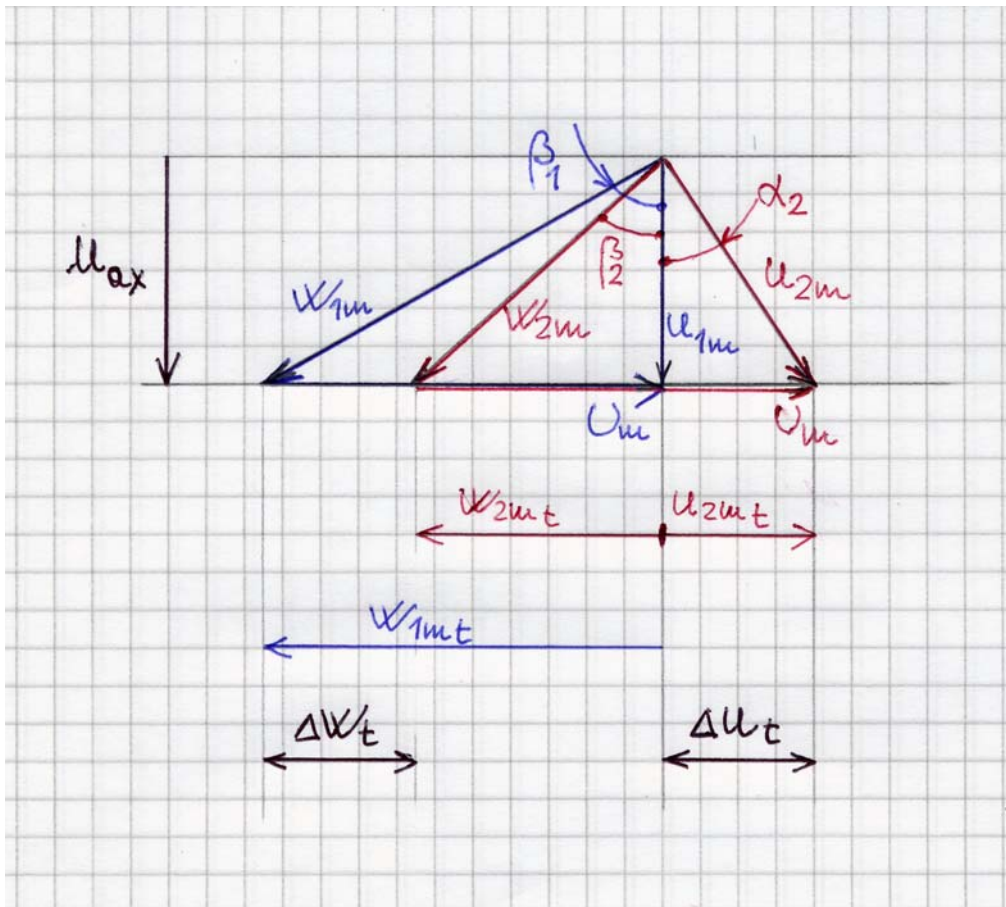 β1
α2
uax
β2
u2m
W1m
W2m
u1m
Um
Um
W2mt
u2mt
W1mt
ΔWt
Δut